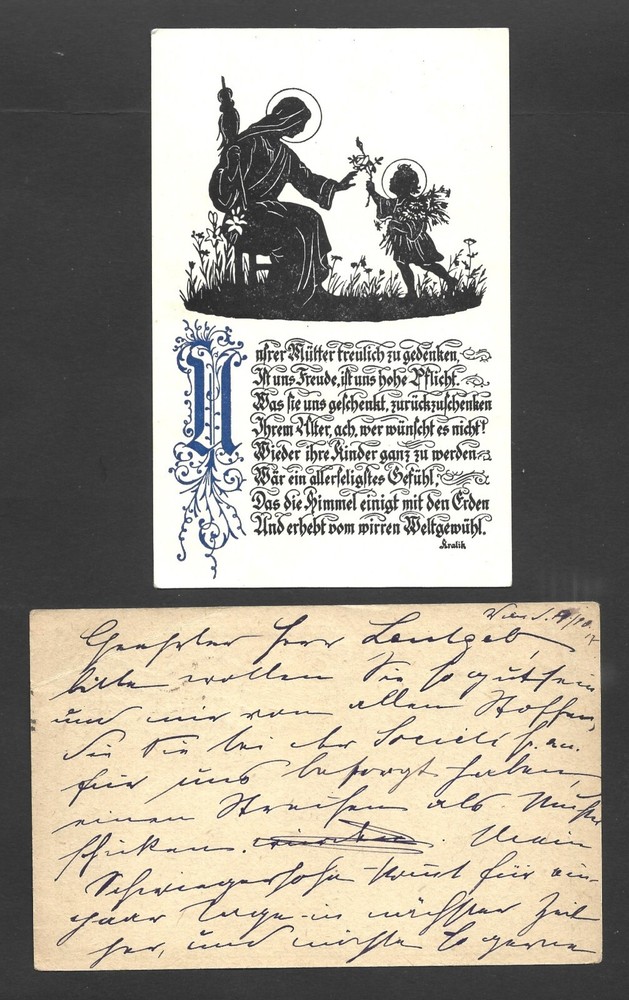 Unsrer Mütter treulich zu gedenken,
Ist uns Freude, ist uns hohe Pflicht.
Was sie uns geschenkt, zurückzuschenken
Ihrem Alter, ach, wer wünscht es nicht!
Wieder ihre Kinder ganz zu werden
Wär ein allerseligstes Gefühl;
Das die Himmel einigt mit den Erden
Und erhebt vom wirren Weltgewühl.
Kralik
Geehrter Herr Leutgeb,
bitte wollen Sie so gut sein
und mir von allen Stoffen,
die Sie bei der Societé f. au.
für uns besorgt haben,
einen Streifen als Muster
schicken. Mein
Schwiegersohn kommt für ein
paar Tage in nächster Zeit
her, und möchte so gerne